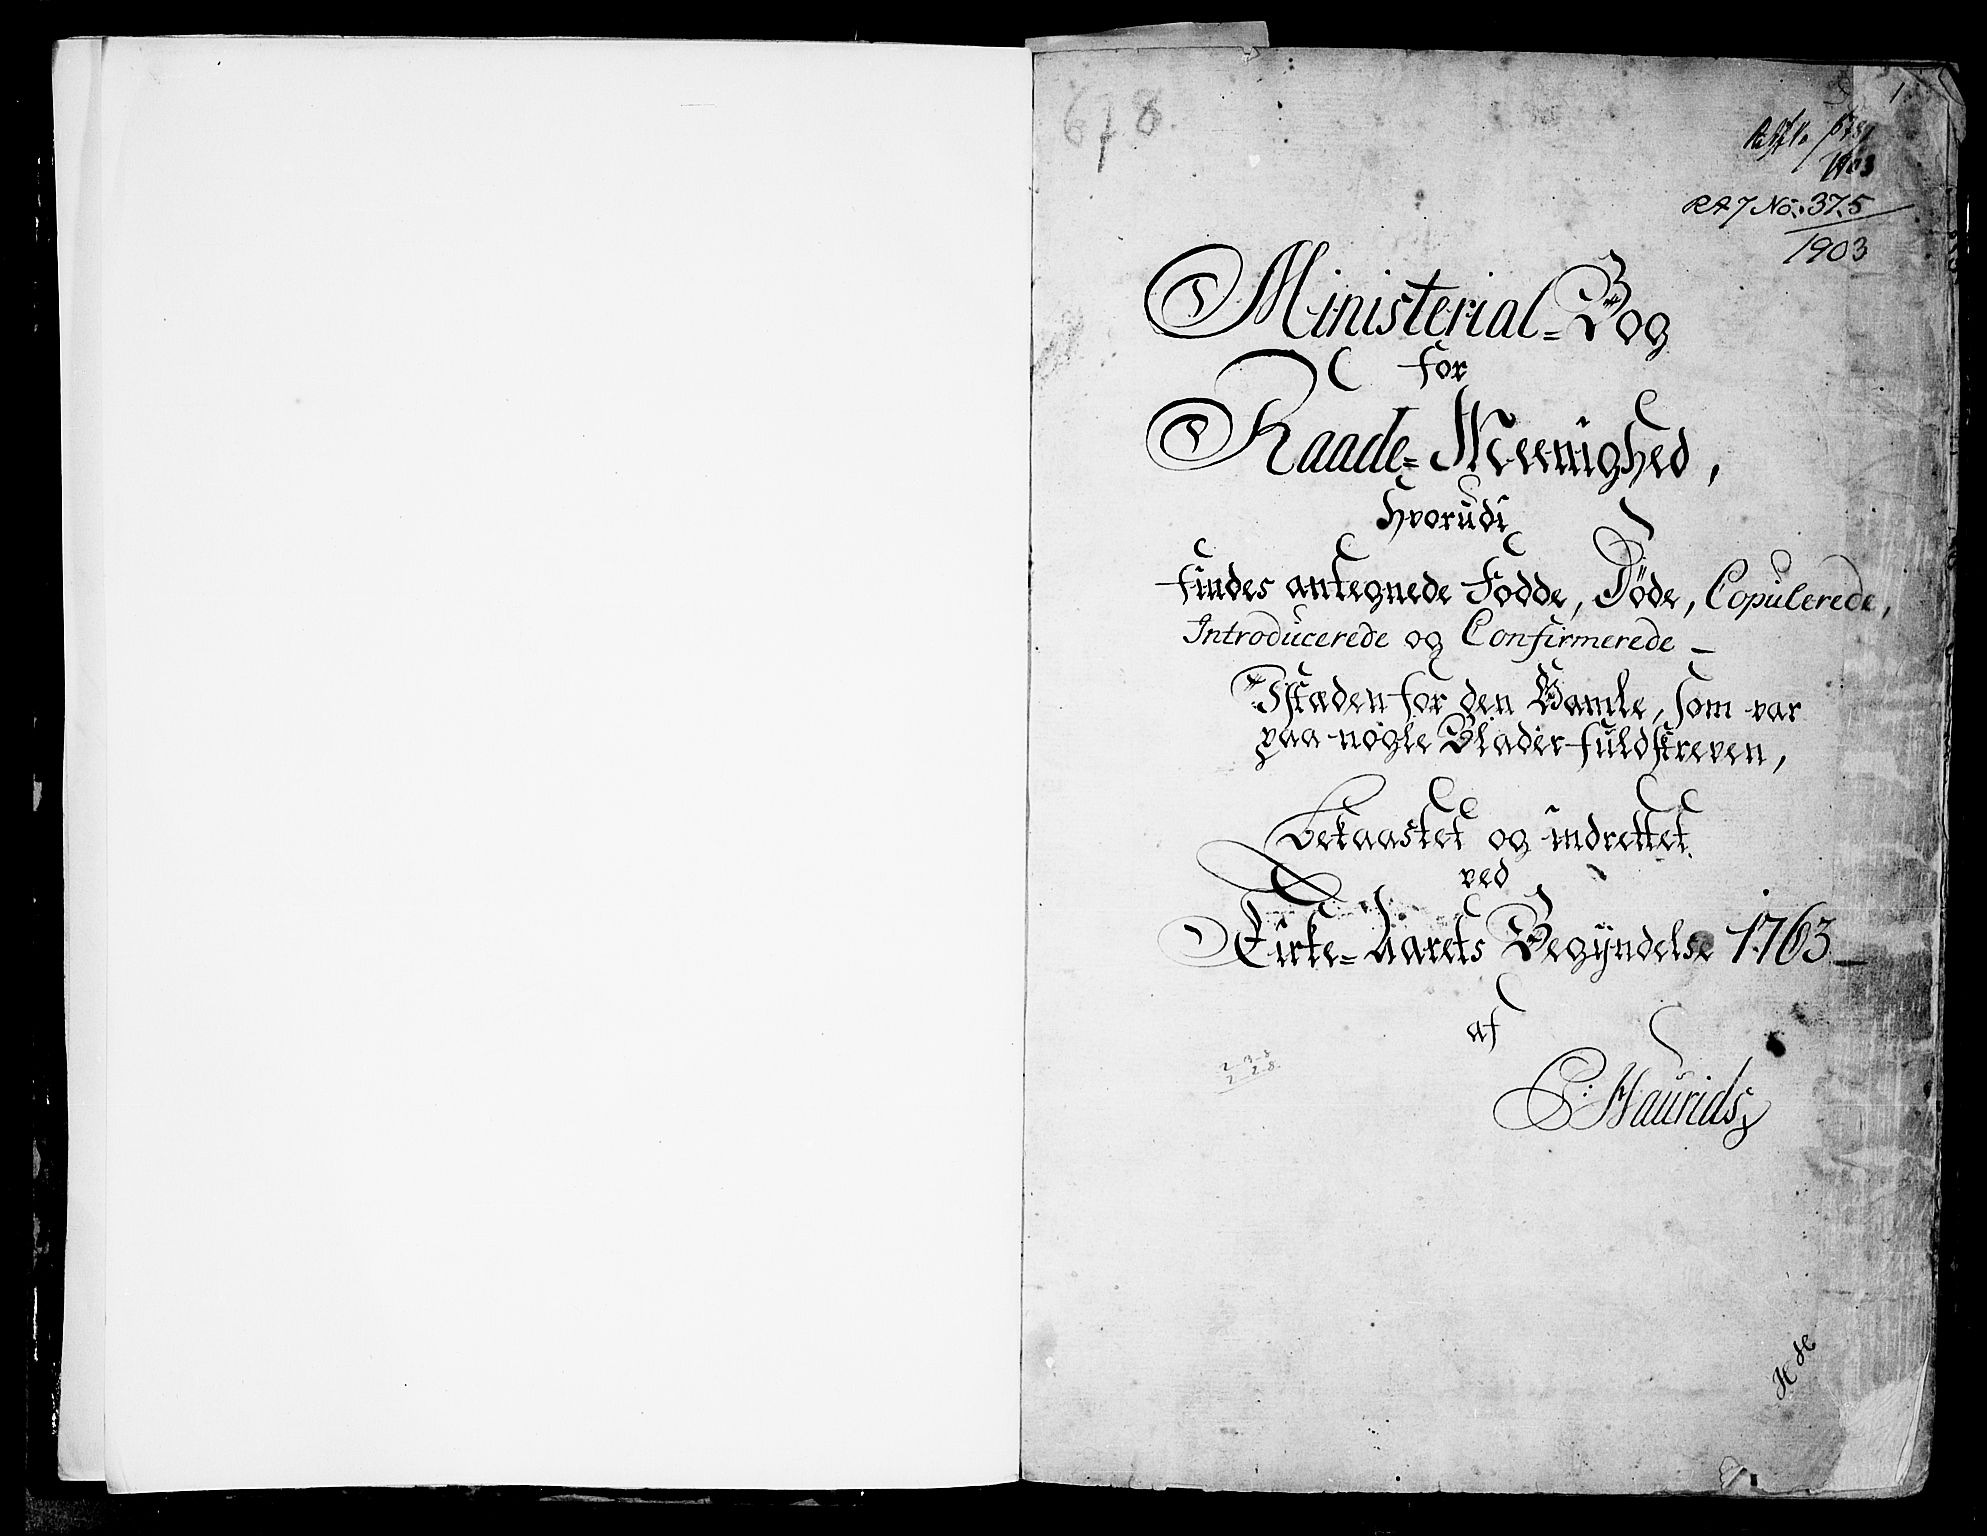 678
1
1903
RA 7 No. 375
1903
Ministerial=Bog
for
Raade=Meenighed,
hvorudi
findes antegnede Fødde, Døde, Copulerede,
Introducerede og Confirmerede —
Istæden for den Gamle, som var
paa nogle Blader fuldskreven,
bekaastet og indrettet
ved
Kirke=Aarets Begÿndelse 1763 —
af
C: Haurids